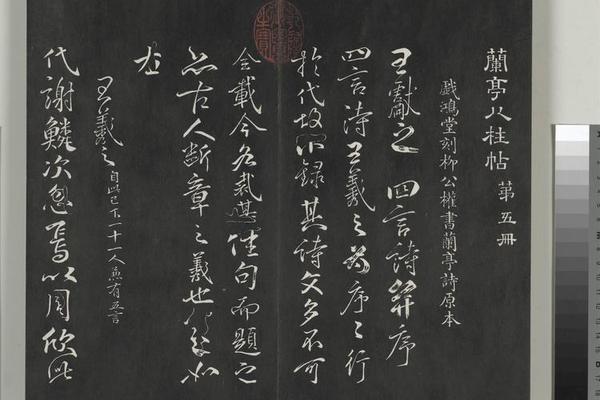 蘭亭八柱帖 第五冊
戲鴻堂刻柳公權書蘭亭詩原本
王獻之四言詩并序
四言詩王羲之為序序行
於代故不錄其詩文多不可
全載今各裁佳句而題之
亦古人斷章之義也如
左
王羲之自此已下一十一人兼有五言
代謝鱗次忽焉以周欣此